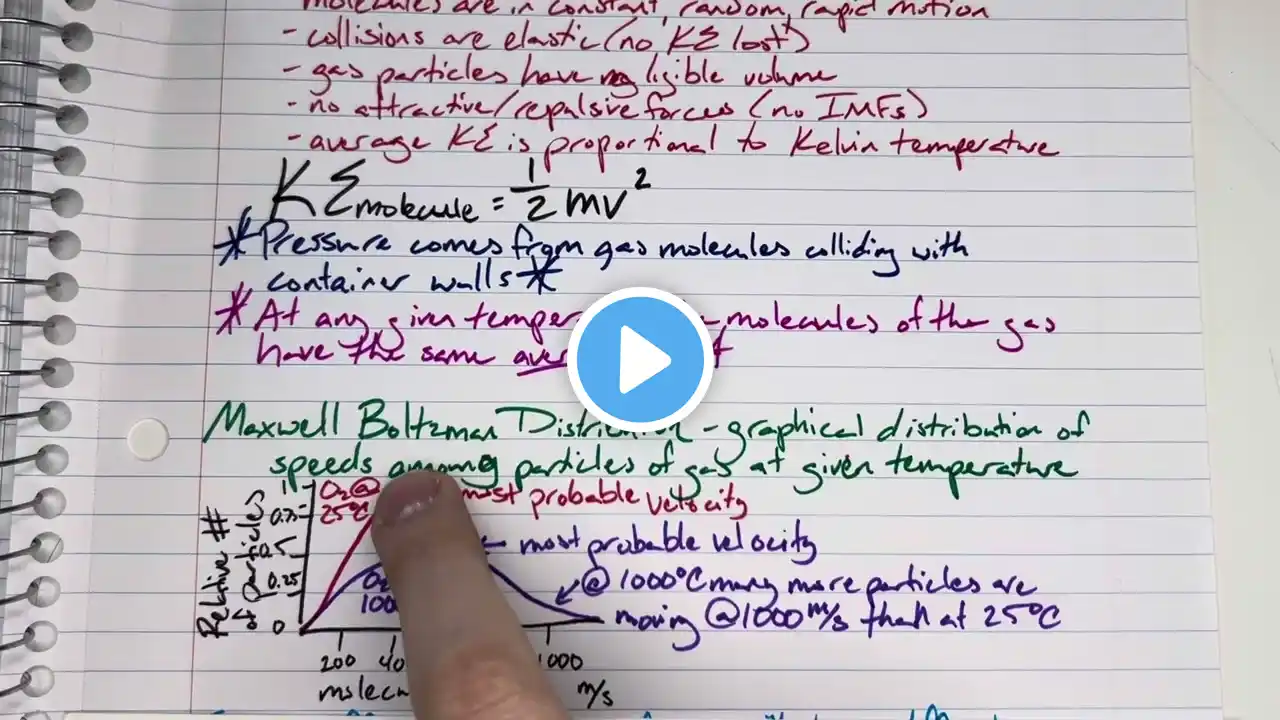 molecules are in constant, random, rapid motion
- collisions are elastic (no KE lost)
- gas particles have negligible volume
- no attractive/repulsive forces (no IMFs)
- average KE is proportional to Kelvin temperature
KE molecule = 1/2 mv²
* Pressure comes from gas molecules colliding with
container walls *
* At any given temper molecules of the gas
have the same
Maxwell Boltzman Distribution - graphical distribution of
speeds among particles of gas at given temperature
O₂ @ most probable velocity
25°C
← most probable velocity
@ 1000°C many more particles are
moving @ 1000 m/s than at 25°C
Relative #
of particles
1
0.75
0.5
0.25
0
200 1000
m/s